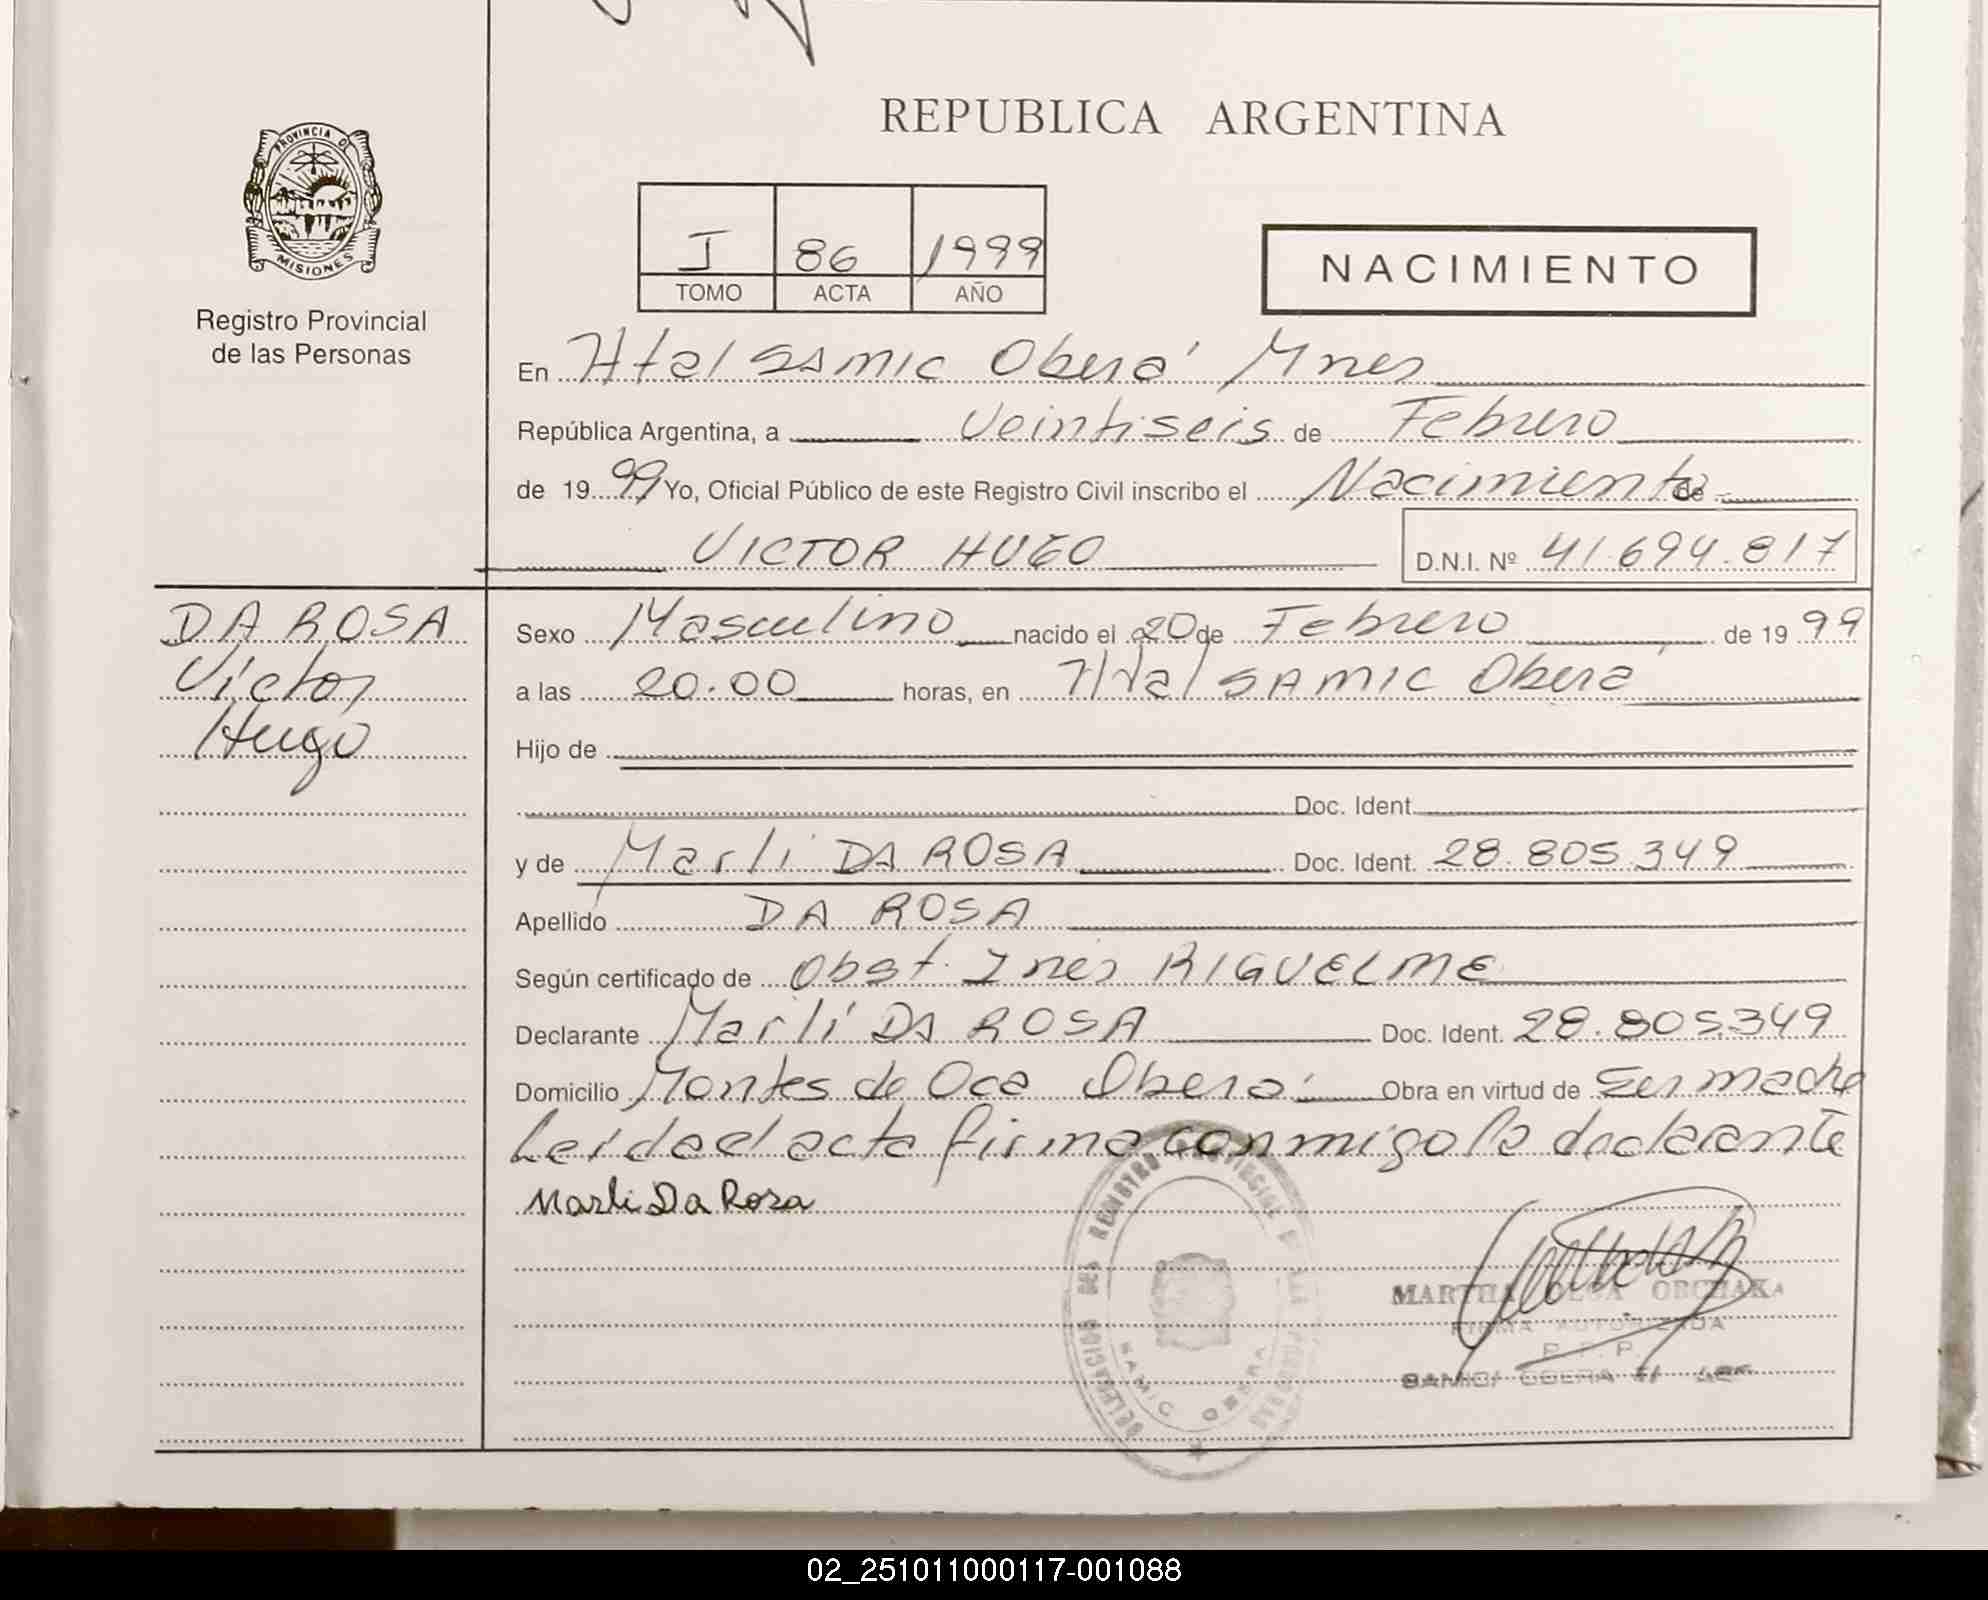 REPUBLICA ARGENTINA
PROVINCIA DE
MISIONES
Registro Provincial
de las Personas
I 86 1999
TOMO ACTA AÑO
NACIMIENTO
En Htal SAMIC Oberá Mnes
República Argentina, a Veintiseis de Febrero
de 19 99 Yo, Oficial Público de este Registro Civil inscribo el Nacimiento de
VICTOR HUGO D.N.I. Nº 41.694.817
DA ROSA
Víctor
Hugo
Sexo Masculino nacido el 20 de Febrero de 19 99
a las 20.00 horas, en Htal SAMIC Oberá
Hijo de
Doc. Ident.
y de Marli DA ROSA Doc. Ident. 28.805.349
Apellido DA ROSA
Según certificado de Obst. Inés RIGUELME
Declarante Marlí DA ROSA Doc. Ident. 28.805.349
Domicilio Montes de Oca Oberá Obra en virtud de Ser madre
Leída el acta firma conmigo la declarante
Marli Da Rosa
DELEGACION DEL REGISTRO PROVINCIAL DE LAS PERSONAS
SAMIC OBERA
MARTHA OLGA ORCHAKA
FIRMA AUTORIZADA
R.P.P.
SAMIC/ OBERA
02_251011000117-001088